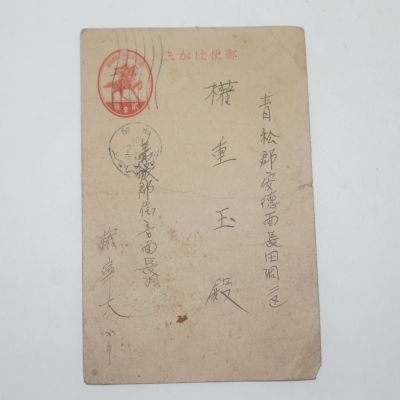 郵便はがき
青松郡安德面長田洞
權重玉殿
義城郡 音面長
權寧大